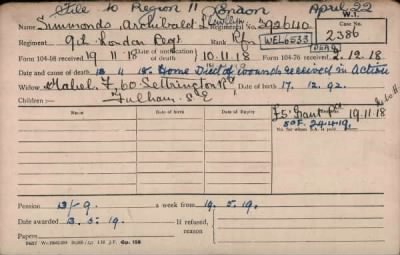 File to Region 11 London April 22
W.I.
Simmonds. Archibald 392640 Case No.
WEL6533 2386
Regiment 9th London Regt Rank Rfn DEAD
Date of notification of death
Form 104-08 received 19. 11. 18 10. 11. 18 Form 104-76 received 2. 12. 18
Date and cause of death Home Died of wounds received in Action
Widow Mabel, F, 60 Settrington Rd Date of birth 17. 12. 92.
Fulham. S.E
Children:—
Name Date of Birth Date of Expiry
£5 Grant pd 19.11.18
29.4.19
No. for whom S.A. is paid
Pension 13/9. a week from 19. 5. 19.
Date awarded 13. 5. 19. If refused, reason
Papers
Gp. 158